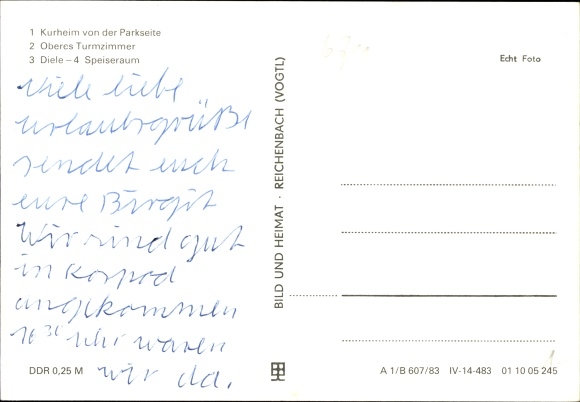 1 Kurheim von der Parkseite
2 Oberes Turmzimmer
3 Diele – 4 Speiseraum
Echt Foto
viele liebe
urlaubsgrüße
sendet euch
eure Birgit
Wir sind gut
in
angekommen
16 30 Uhr waren
wir da.
BILD UND HEIMAT · REICHENBACH (VOGTL)
DDR 0,25 M
A 1/B 607/83 IV-14-483 01 10 05 245